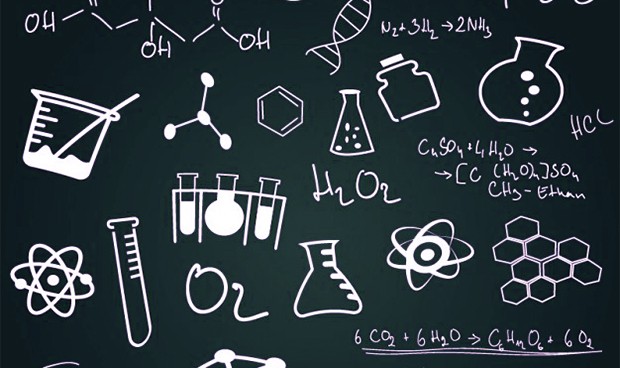 OH
OH
OH
N₂+3H₂→2NH₃
HCl
CuSO₄+4H₂O →
→[C (H₂O)₄]SO₄
CH₃-Ethan
H₂O₂
O₂
6 CO₂ + 6 H₂O → C₆H₁₂O₆ + 6 O₂